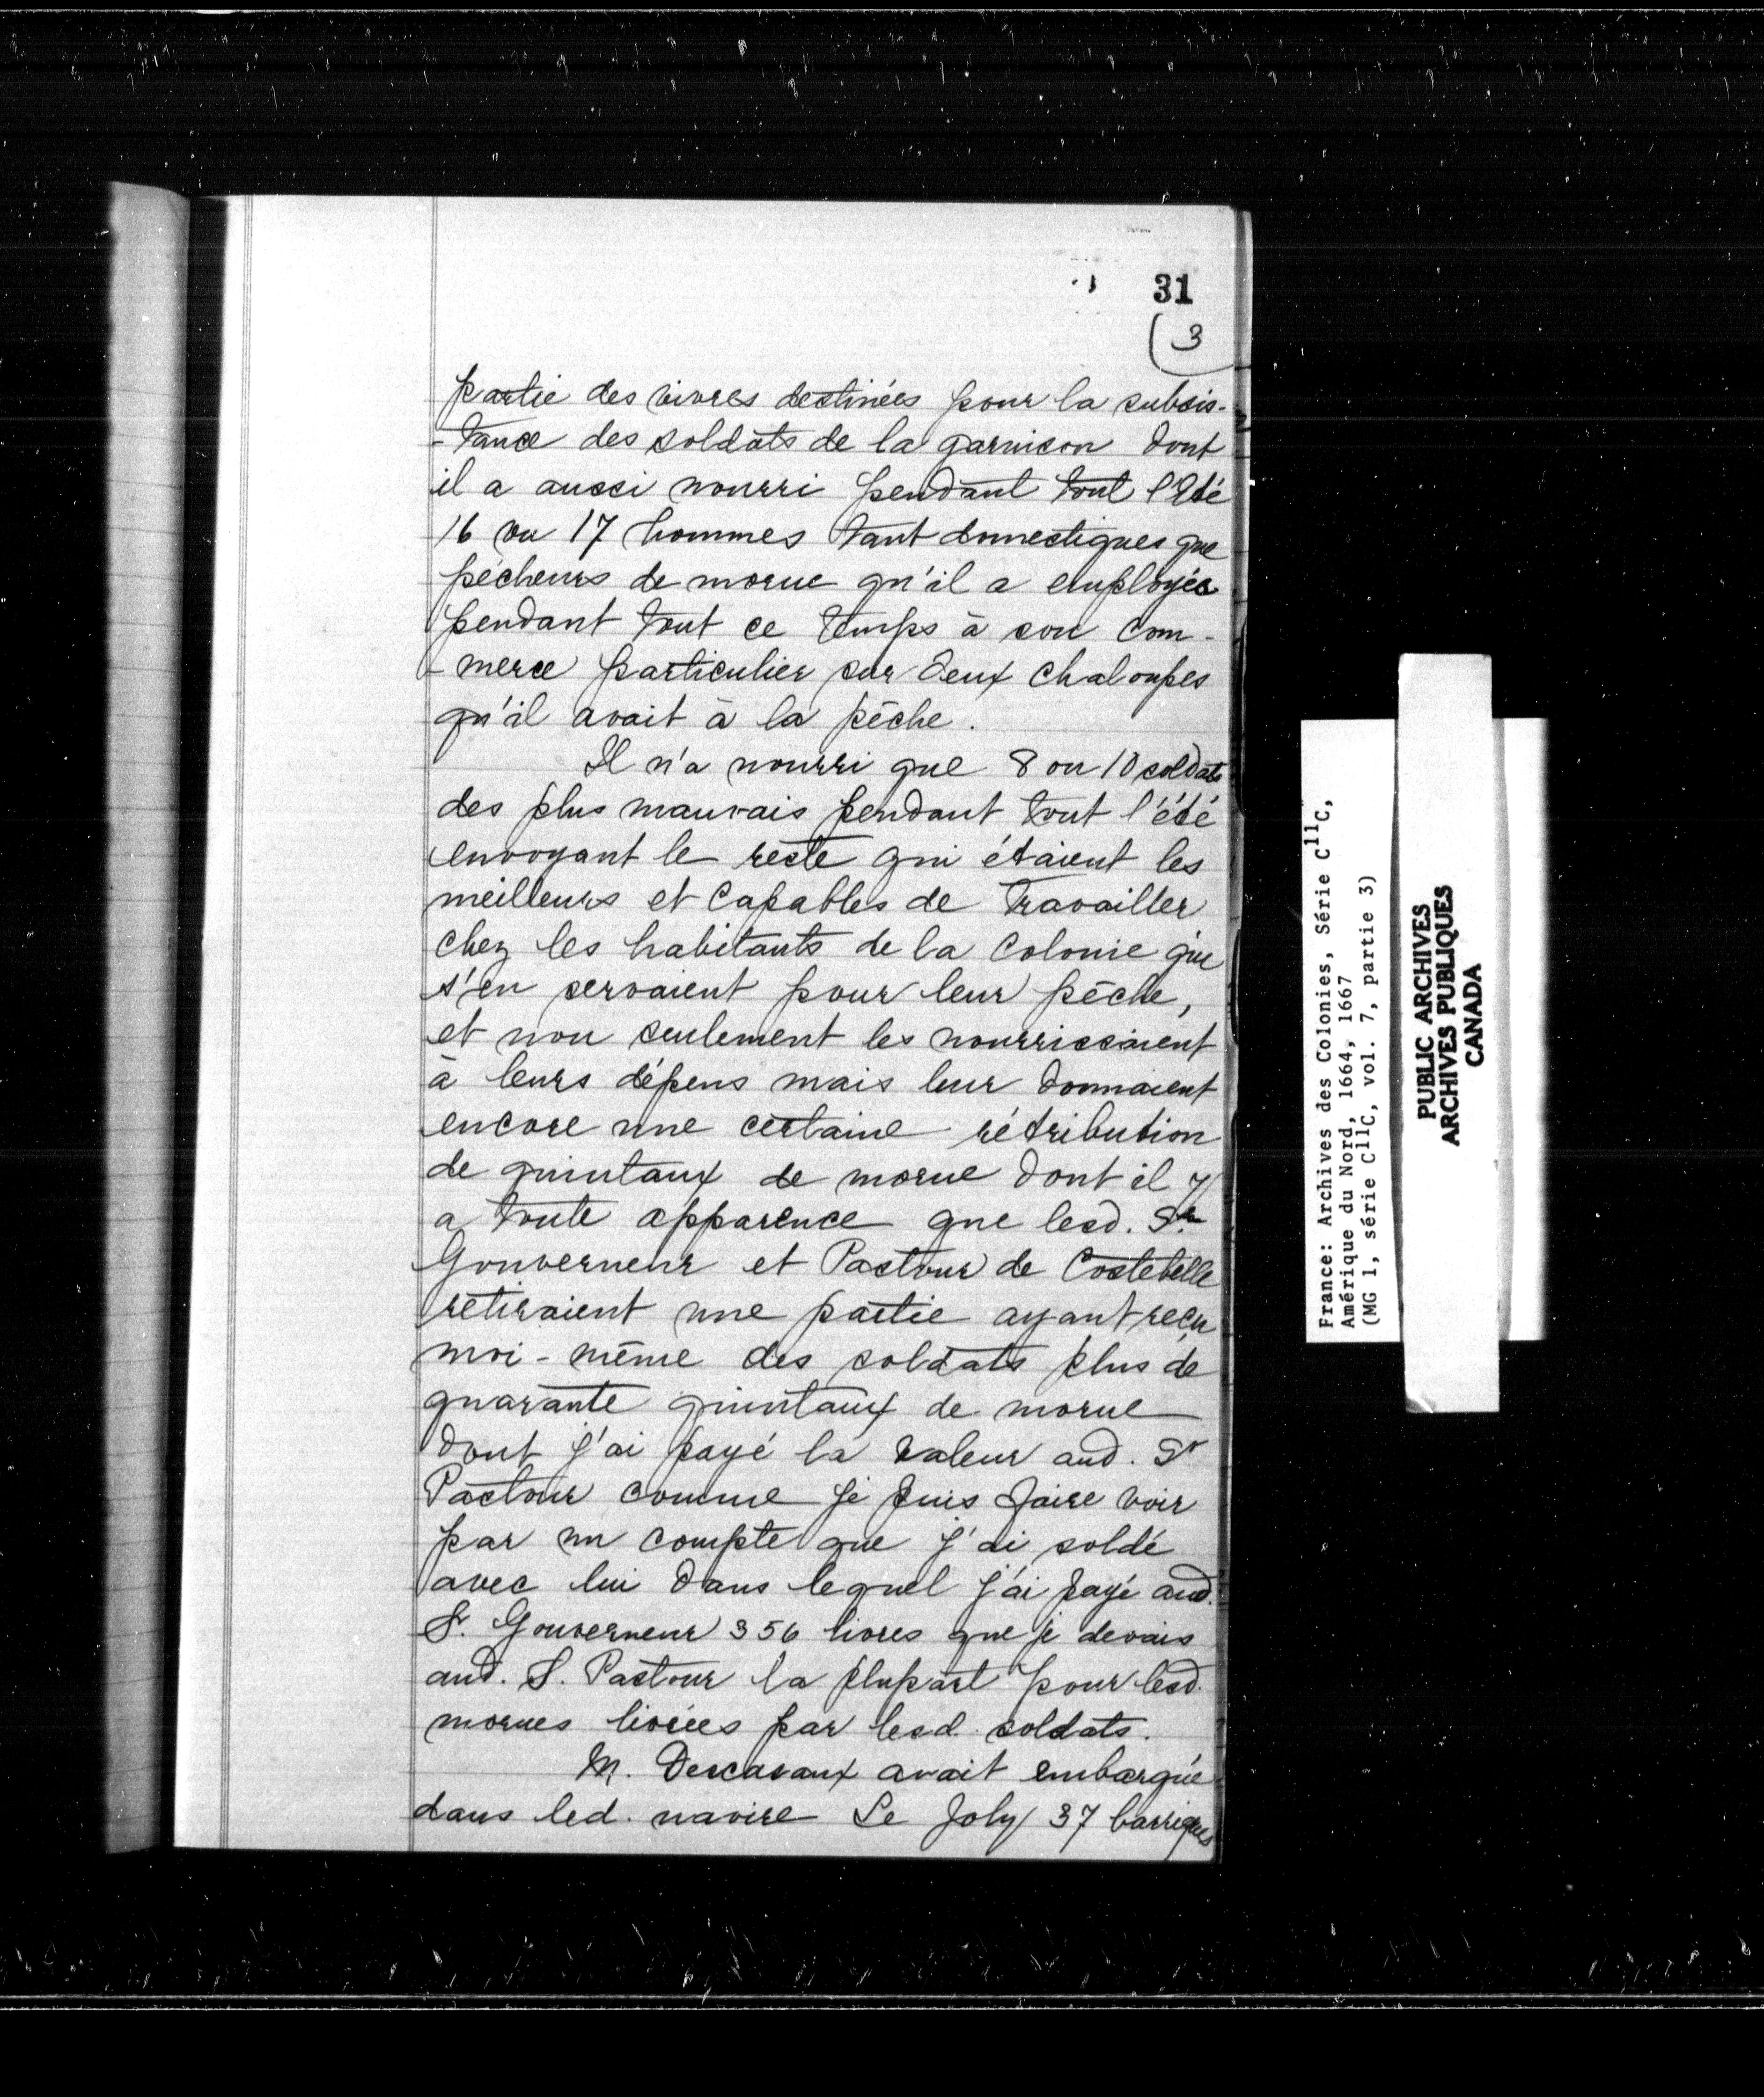 31
(3
partie des vivres destinées pour la subsis-
-tance des soldats de la garnison dont
il a aussi nourri pendant tout l'Eté
16 ou 17 hommes tant domestiques que
pécheurs de morue qu'il a employés
pendant tout ce temps à son com-
-merce particulier sur deux chaloupes
qu'il avait à la pêche.
Il n'a nourri que 8 ou 10 soldats
des plus mauvais pendant tout l'été
envoyant le reste qui étaient les
meilleurs et capables de travailler
chez les habitants de la colonie qui
s'en servaient pour leur pêche,
et non seulement les nourrissaient
à leurs dépens mais leur donnaient
encore une certaine rétribution
de quintaux de morue dont il y
a toute apparence que lesd. Srs
Gouverneur et Pastour de Costebelle
retiraient une partie ayant reçu
moi-même des soldats plus de
quarante quintaux de morue
dont j'ai payé la valeur aud. Sr
Pastour comme je puis faire voir
par un compte que j'ai soldé
avec lui dans lequel j'ai payé aud.
Sr. Gouverneur 356 livres que je devais
aud. S. Pastour la plupart pour lesd.
morues livrées par lesd. soldats.
M. Descasaux avait embarqué
dans led. navire Le Joly 37 barriques
France: Archives des Colonies, Série C11C,
Amérique du Nord, 1664, 1667
(MG 1, série C11C, vol. 7, partie 3)
PUBLIC ARCHIVES
ARCHIVES PUBLIQUES
CANADA